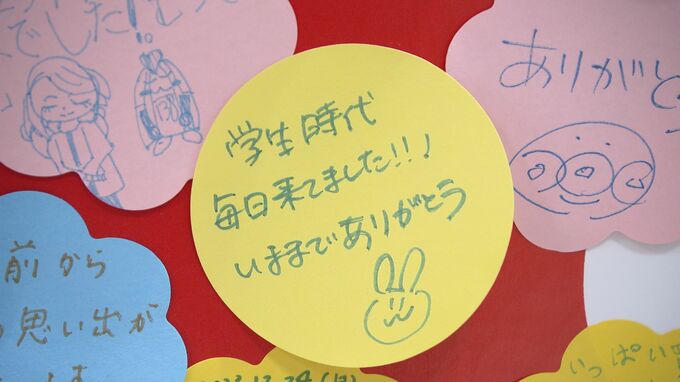 でした!
学生時代
毎日来てました!!!
いままでありがとう
ありがと
前から
思い出が
いっぱい